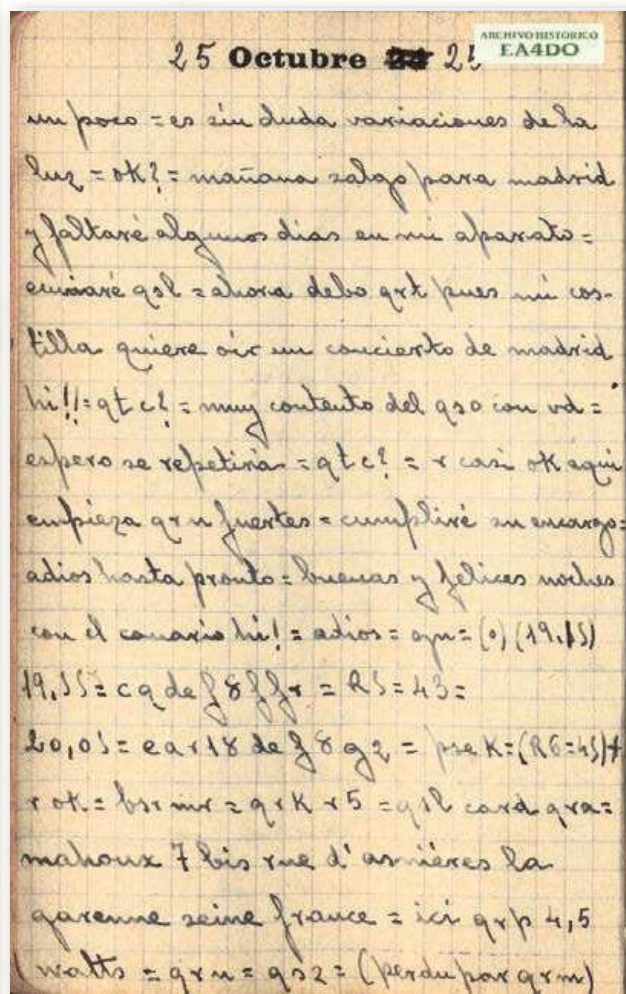 ARCHIVO HISTORICO
EA4DO
25 Octubre 25
un poco = es sin duda variaciones de la
luz = ok? = mañana salgo para madrid
y faltaré algunos dias en mi aparato =
enviaré qsl = ahora debo qrt pues mi cos-
tilla quiere oir un concierto de madrid
hi!! = qtc? = muy contento del qso con vd =
espero se repetiria = qtc? = r casi ok aqui
empieza qrn fuertes = cumpliré su encargo =
adios hasta pronto = buenas y felices noches
con el canario hi! = adios = = (0) (19,15)
19,55 = cq de f8ffr = R5 = 43 =
20,05 = ear18 de f8gz = pse K = (R6 = 45) +
r ok = bsr mr = qrk r5 = qsl card qra =
mahoux 7 bis rue d'asnières la
garenne seine france = ici qrp 4,5
watts = qrn = qsz = (perdu par qrm)